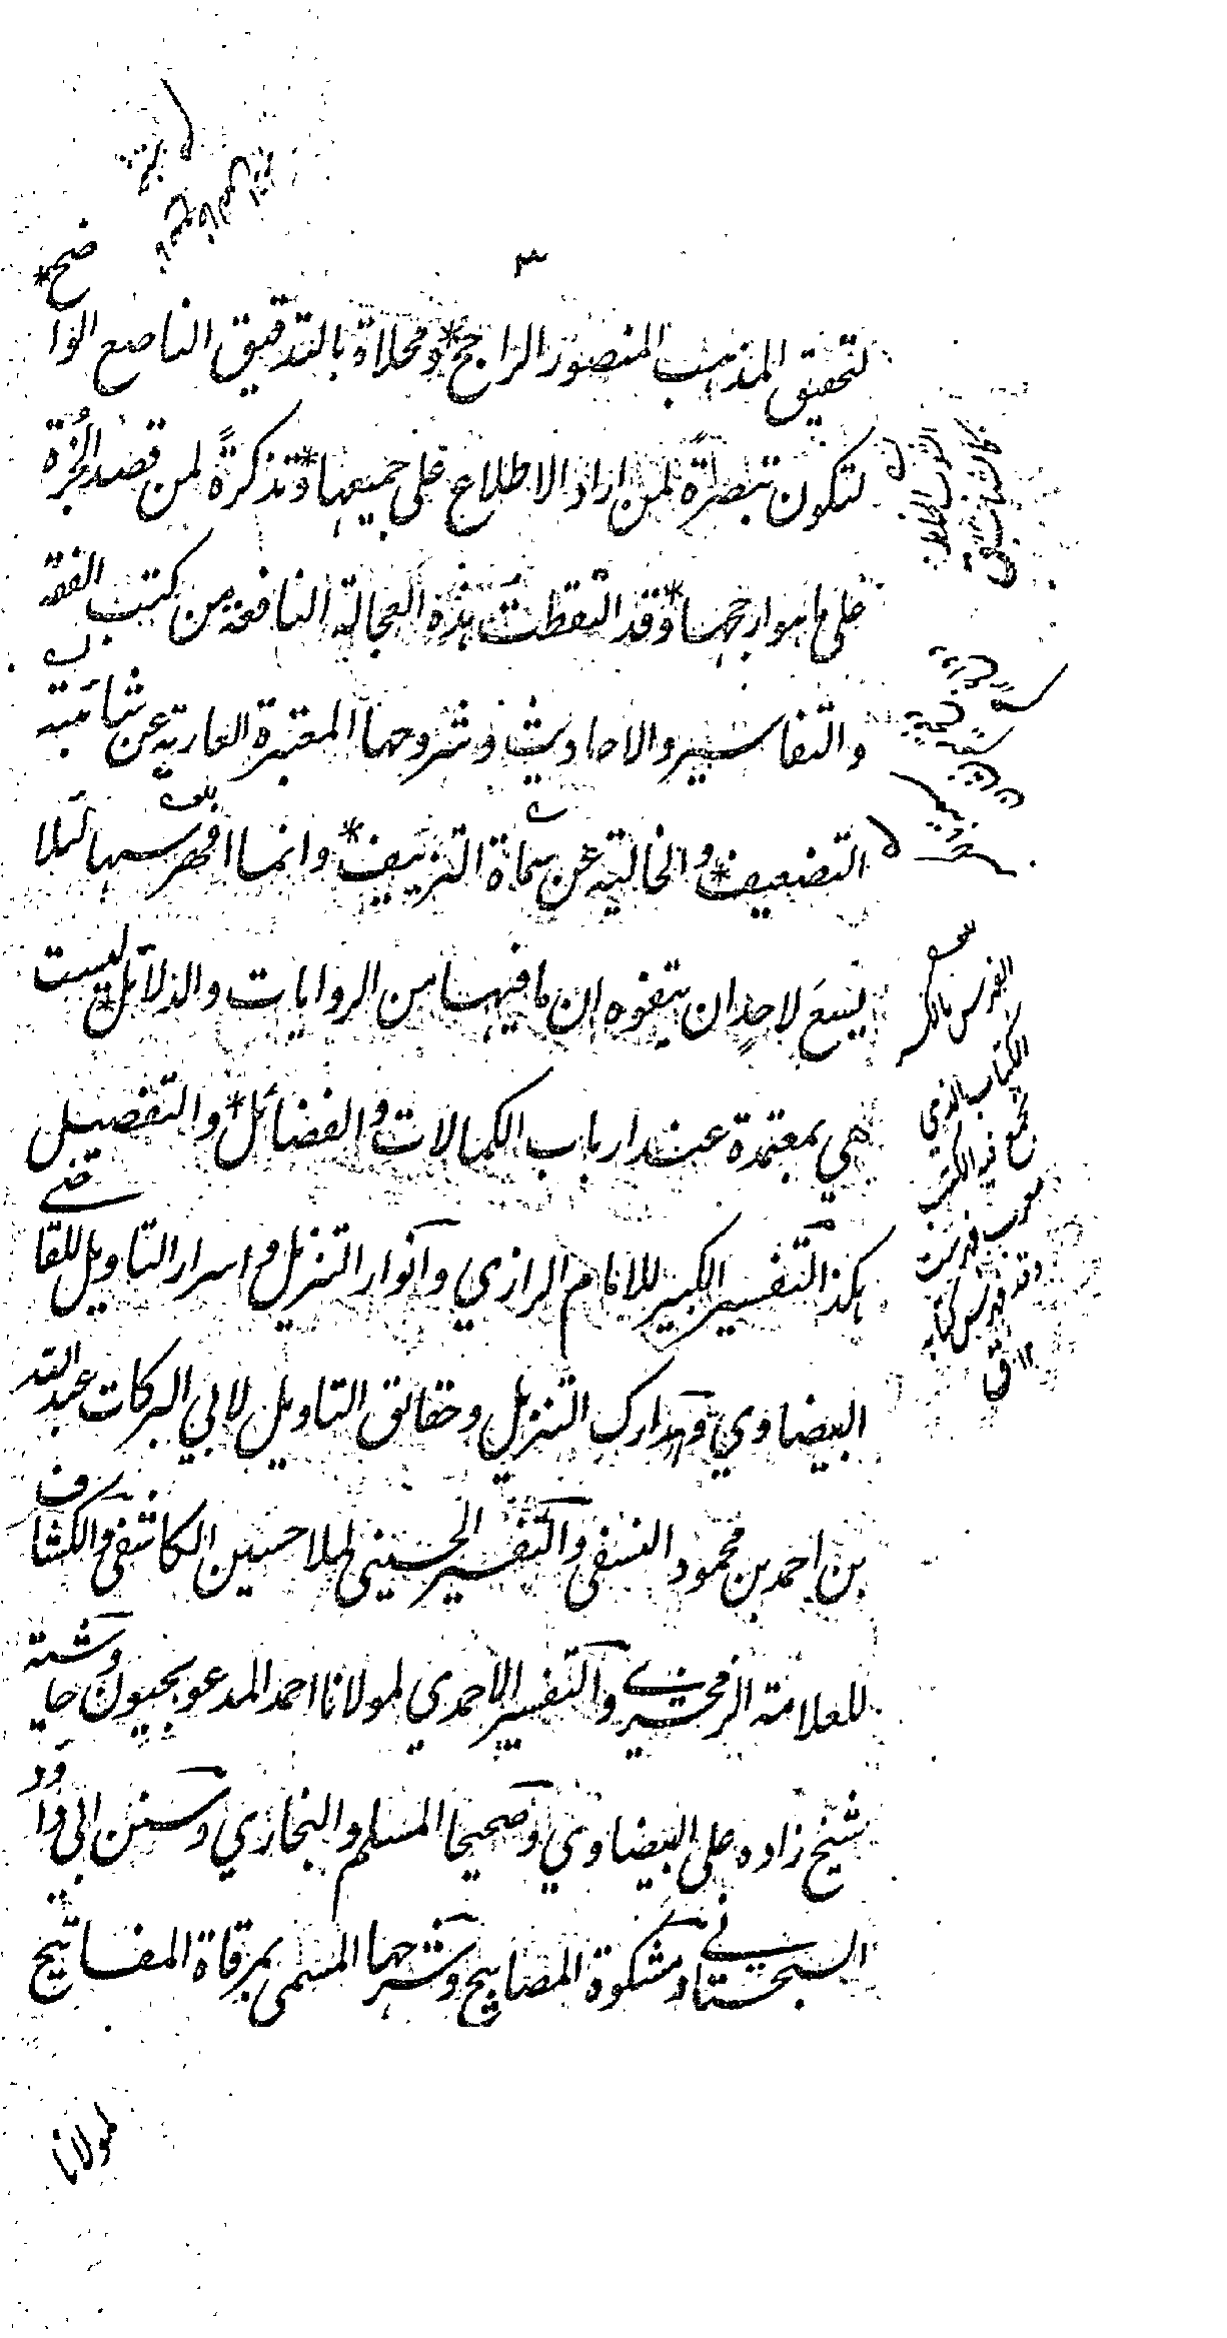 ٣
لتحقيق المذهب المنصور الراجح * ومحلاة بالتدقيق الناصع الواضح *
لتكون تبصرةً لمن اراد الاطلاع على جميعها * وتذكرةً لمن قصد
على ما هو ارجحها * وقد التقطت هذه العجالة النافعة من كتب الفقه
والتفاسير والاحاديث وشروحها المعتبرة العارية عن شائبة
التضعيف * والخالية عن سماة التزئيف * وانما افهرسها لئلا
يسع لاحدٍ ان يتفوه ان ما فيها من الروايات والدلائل * ليست
هي بمعتمدة عند ارباب الكمالات والفضائل * والتفصيل
هكذا التفسير الكبير للامام الرازي وانوار التنزيل واسرار التاويل للقاضي
البيضاوي ومدارك التنزيل وحقائق التاويل لابي البركات عبد الله
بن احمد بن محمود النسفي والتفسير الحسيني لملا حسين الكاشفي والكشاف
للعلامة الزمخشري والتفسير الاحمدي لمولانا احمد المدعو بجيون وحاشية
شيخ زاده على البيضاوي وصحيحا المسلم والبخاري وسنن ابي داود
السجستاني ومشكوة المصابيح وشرحها المسمى بمرقاة المفاتيح
الكتاب الذي
تجمع فيه الكتب
لمولانا